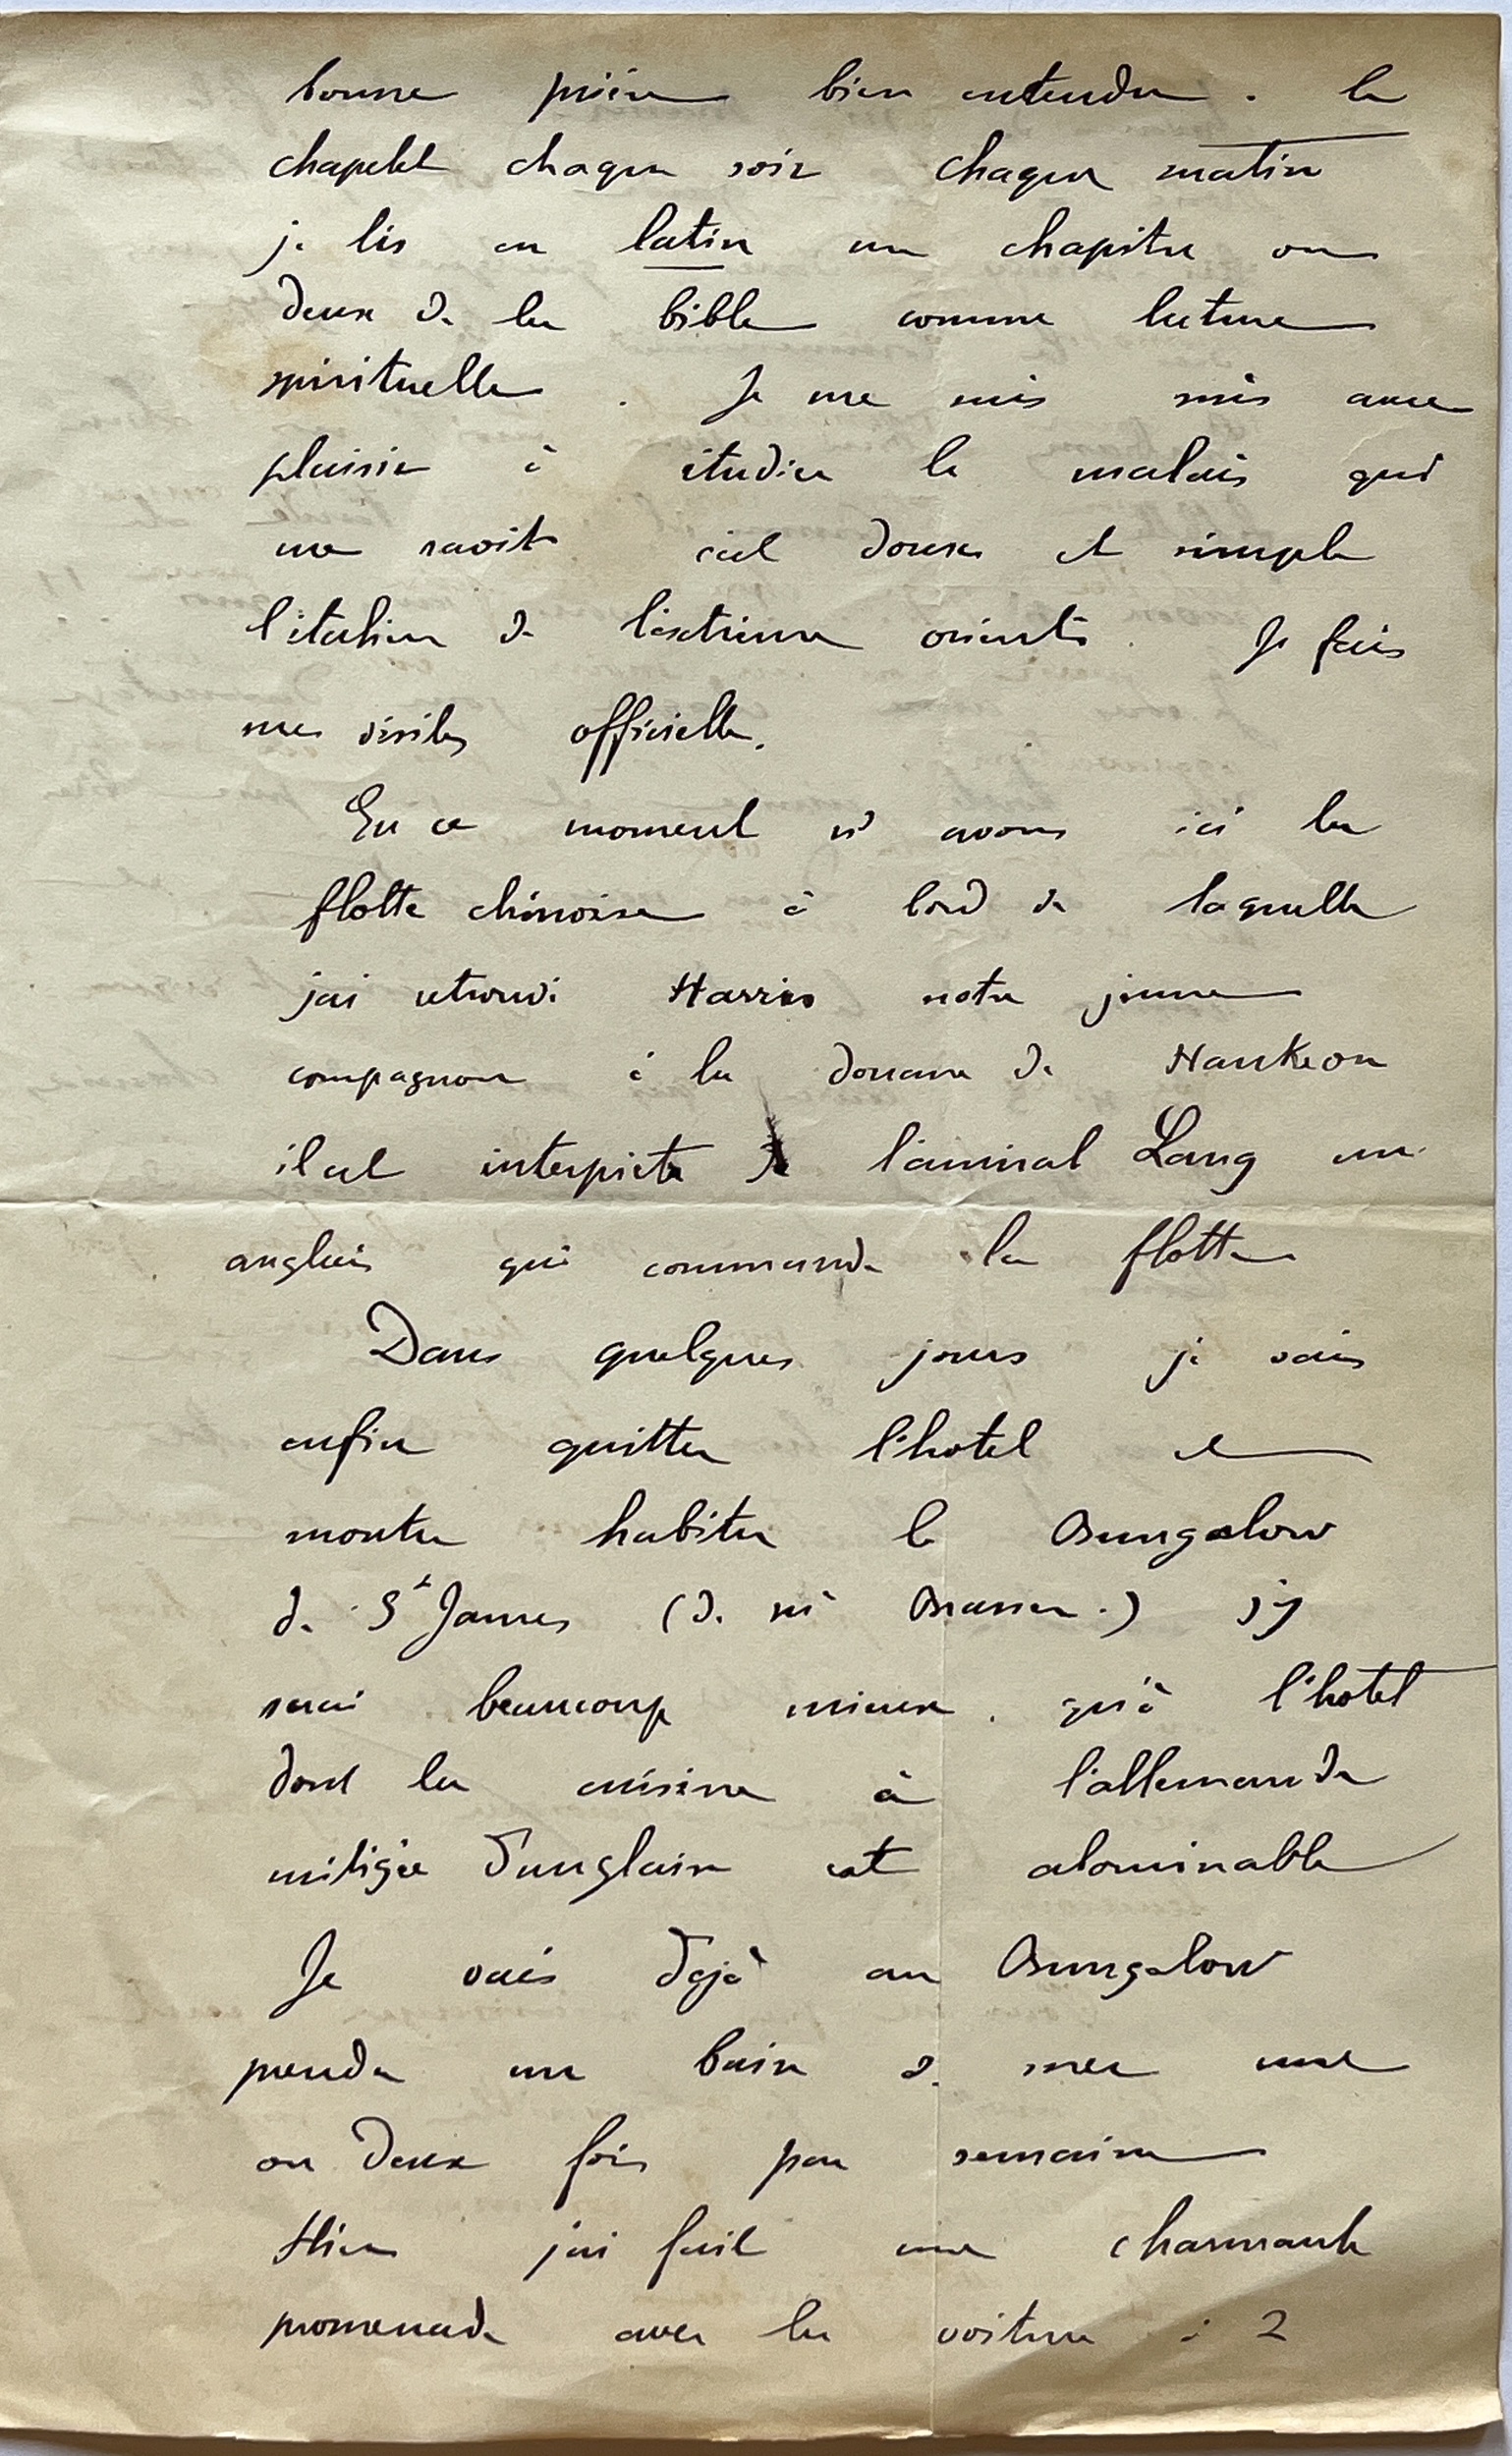 bonne prière bien entendu. le
chapelet chaque soir chaque matin
je lis en latin un chapitre ou
deux de la bible comme lecture
spirituelle. Je me suis mis avec
plaisir à étudier le malais qui
me ravit c'est doux et simple
l'italien de l'extrême orient. Je fais
mes visites officielles.
En ce moment ns avons ici la
flotte chinoise à bord de laquelle
j'ai retrouvé Harris notre jeune
compagnon à la douane de Hankeou
il est interprète de l'amiral Lang un
anglais qui commande la flotte
Dans quelques jours je vais
enfin quitter l'hotel et
monter habiter le Bungalow
de St James (de Mr Brasier.) j'y
serai beaucoup mieux. qu'à l'hotel
dont la cuisine à l'allemande
mitigée d'anglaise est abominable
Je vais déjà au Bungalow
prendre un bain de mer une
ou deux fois par semaine
Hier j'ai fait une charmante
promenade avec la voiture à 2